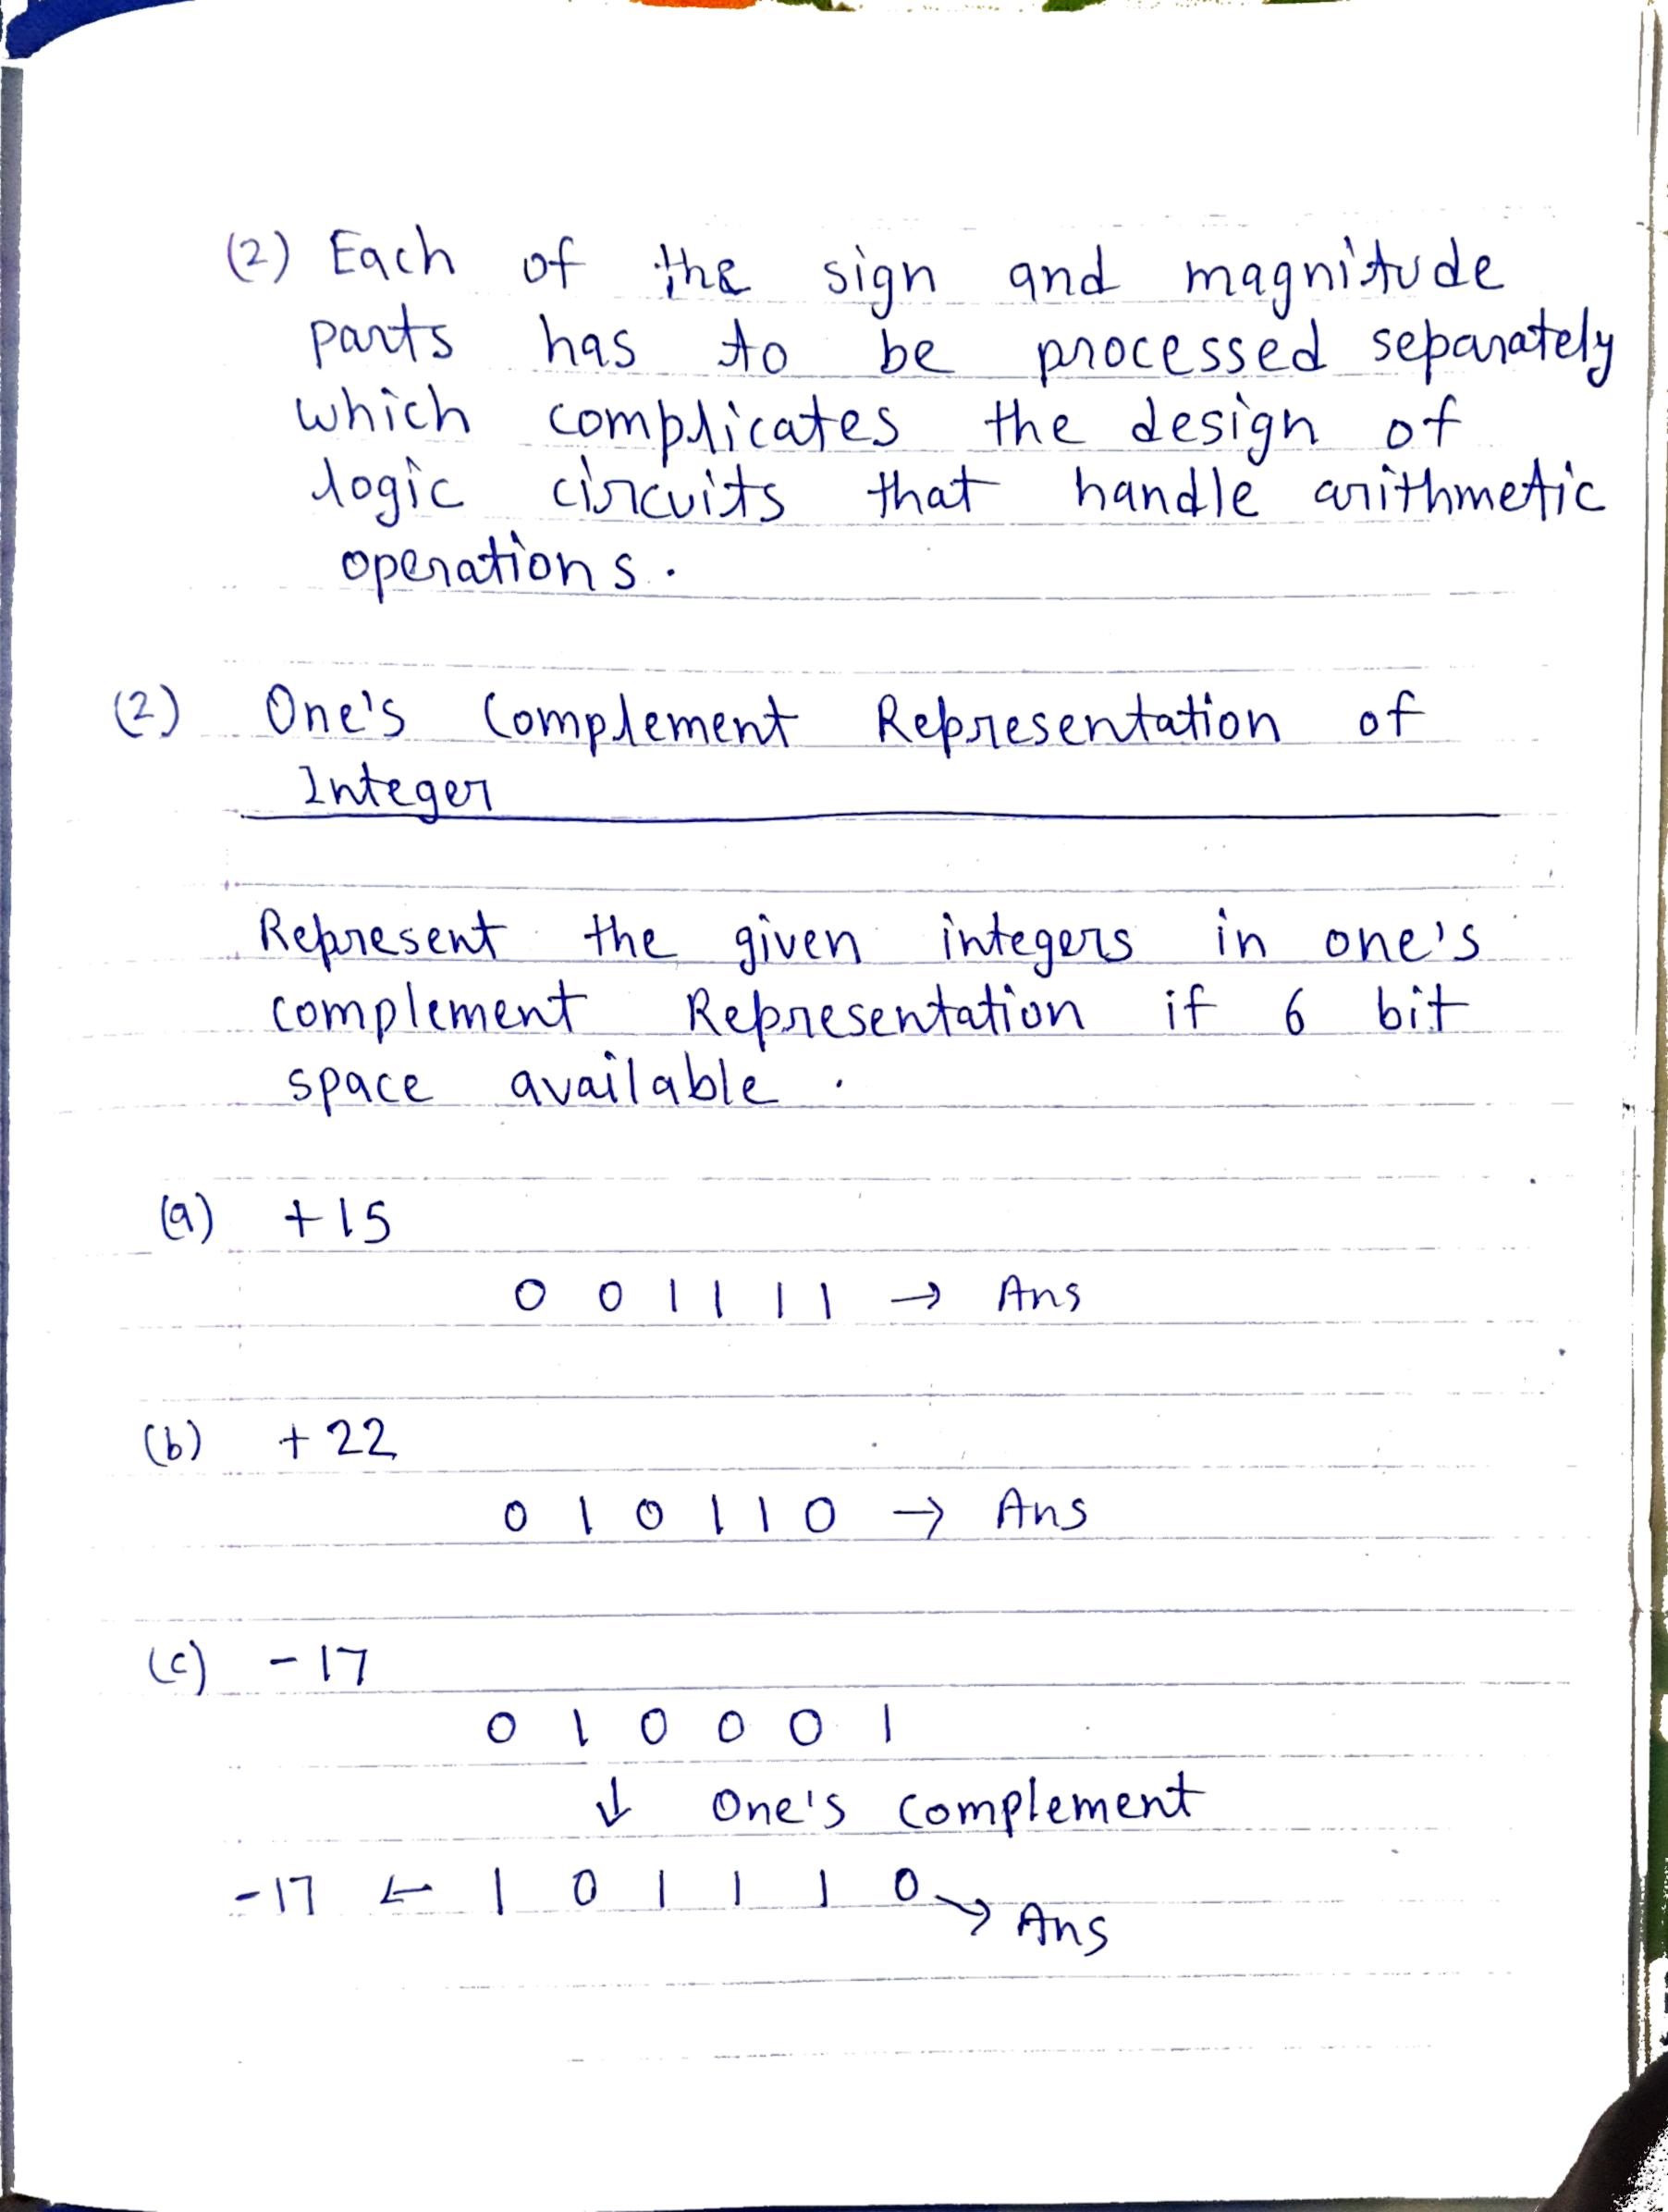 (2) Each of the sign and magnitude
parts has to be processed separately
which complicates the design of
logic circuits that handle arithmetic
operations.
(2) One's Complement Representation of
Integer
Represent the given integers in one's
complement Representation if 6 bit
space available.
(a) +15
0 0 1 1 1 1 → Ans
(b) +22
0 1 0 1 1 0 → Ans
(c) -17
0 1 0 0 0 1
↓ One's complement
-17 ← 1 0 1 1 1 0 → Ans